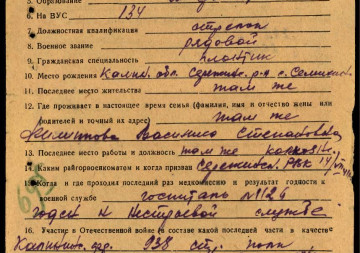 5. Образование
6. На ВУС 134
7. Должностная квалификация стрелок
8. Военное звание рядовой
9. Гражданская специальность плотник
10. Место рождения Калин. обл. р-н с.
11. Последнее место жительства там же
12. Где проживает в настоящее время семья (фамилия, имя и отчество жены или
родителей и точный их адрес) там же
Василиса Степановна
13. Последнее место работы и должность там же колхозн.
14. Каким райгорвоенкоматом и когда призван РВК
15. Когда и где проходил последний раз медкомиссию и результат годности к
военной службе госпиталь №1126
годен к нестроевой службе
16. Участие в Отечественной войне (в составе какой последней части в качестве
Калинин. фр. 938 стр. полк